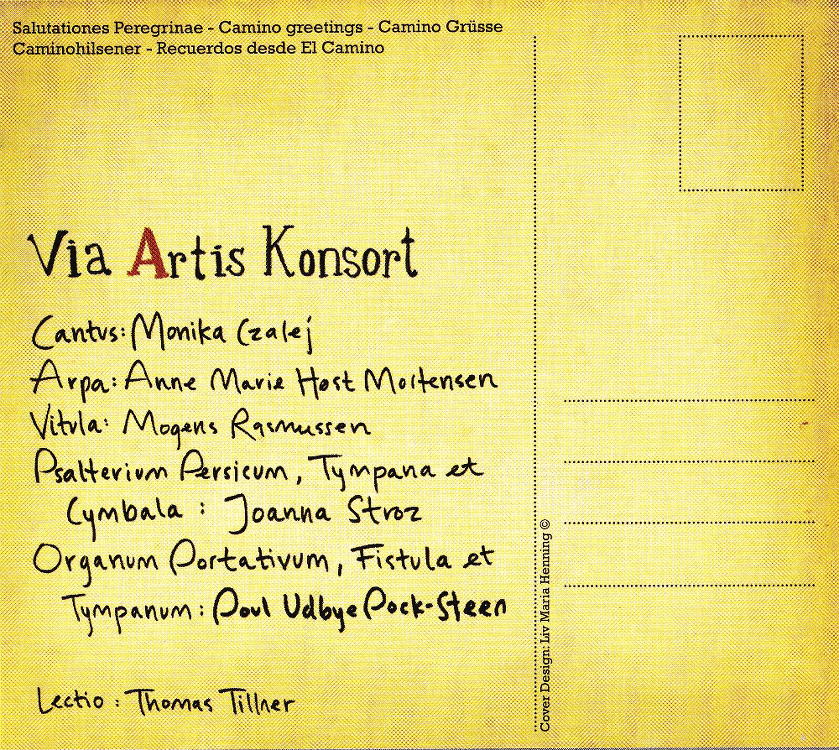 Salutationes Peregrinae - Camino greetings - Camino Grüsse
Caminohilsener - Recuerdos desde El Camino
Via Artis Konsort
Cantus: Monika Czalej
Arpa: Anne Marie Høst Mortensen
Vitula: Mogens Rasmussen
Psalterium Persicum, Tympana et
Cymbala : Joanna Stroz
Organum Portativum, Fistula et
Tympanum: Poul Udbye Pock-Steen
Lectio : Thomas Tillner
Cover Design: Liv Maria Henning ©